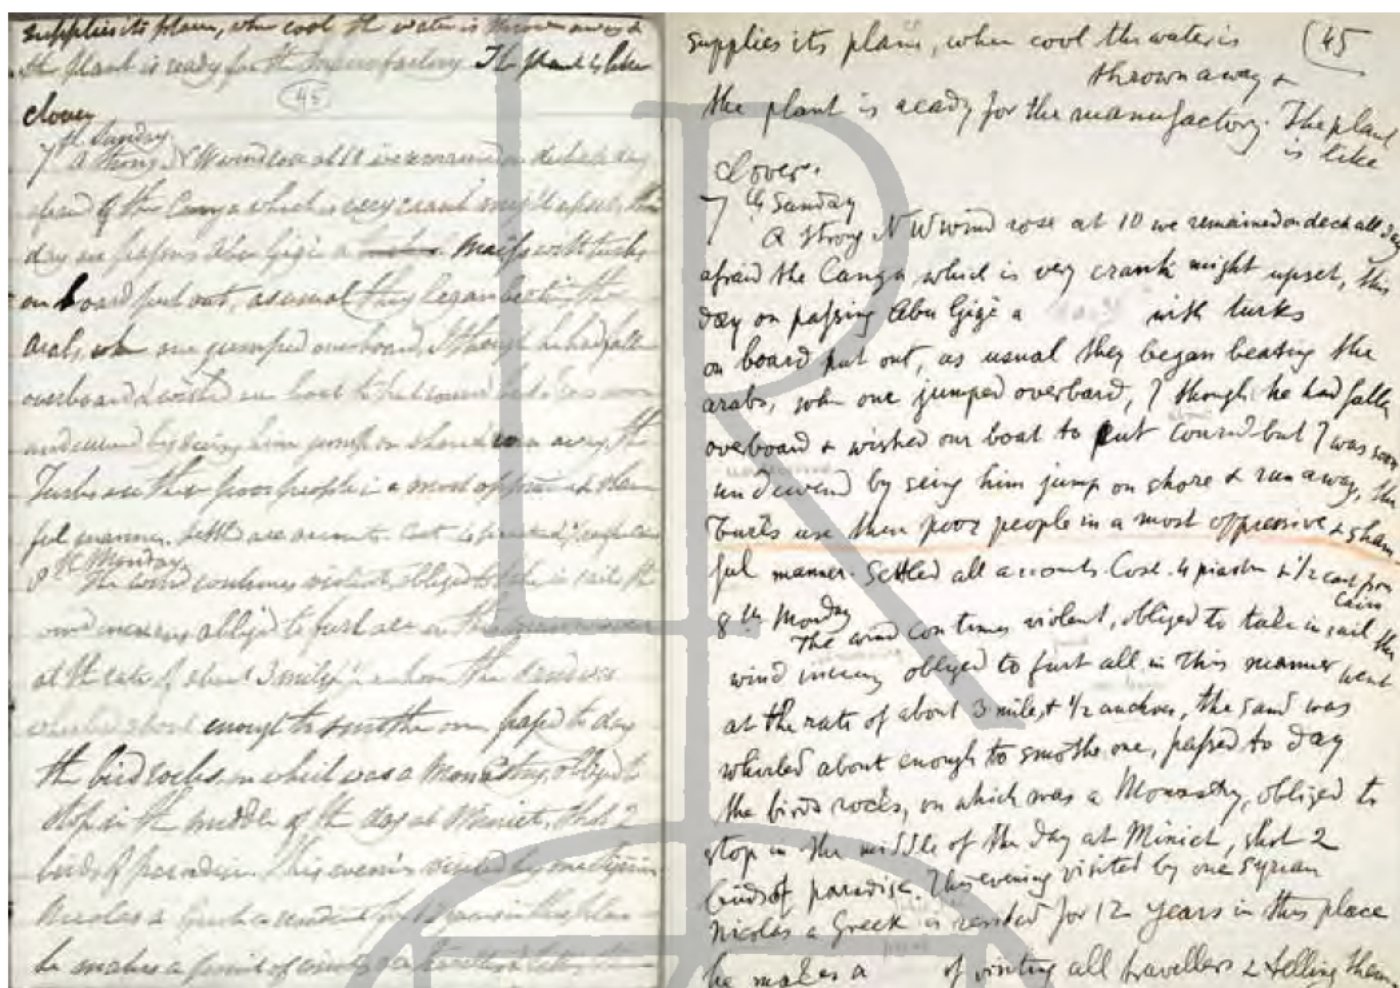 supplies its plam, when cool the water is thrown away &
the plant is ready for the manufactory The plant is like
clover
45
7th Sunday
A strong N W wind rose at 10 we remained on deck all day
afraid of the Canga which is very crank might upset, this
day on passing Abu Gigi a with turks
on board put out, as usual they began beating the
arabs, when one jumped overboard, I thought he had falle
overboard & wished our boat to
undeceived by seeing him jump on shore & run away, the
Turks use these poor people in a most oppressive & sham
ful manner. Settled all accounts. Cost
8th Monday
The wind continues violent, obliged to take in sail the
wind obliged to furl all in this manner
at the rate of about 3 miles the sand was
whirled about enough to smother one, passed to day
the bird rocks, on which was a Monastry, obliged to
stop in the middle of the day at Miniet, shot 2
birds of paradise. This evening visited by one Syrian
Nicolas a Greek resident for 12 years in this place
he makes a point of
supplies its plam, when cool the water is
45
thrown away &
the plant is ready for the manufactory. The plant
is like
clover.
7th Sunday
A strong N W wind rose at 10 we remained on deck all day
afraid the Canga which is very crank might upset, this
day on passing Abu Gigi a with turks
on board put out, as usual they began beating the
arabs, when one jumped overbard, I though he had falle
overboard & wished our boat to put round but I was soon
undeceived by seing him jump on shore & run away, the
Turks use these poor people in a most oppressive & sham
ful manner. Settled all accounts. Cost 4 piastres & 1/2 each from
Cairo
8th Monday
The wind continues violent, obliged to take in sail the
wind obliged to furl all in this manner went
at the rate of about 3 miles & 1/2 an hour, the sand was
whirled about enough to smothe one, passed to day
the birds rocks, on which was a Monastry, obliged to
stop in the middle of the day at Miniet, shot 2
birds of paradise. This evening visited by one Syrian
Nicolas a Greek is resided for 12 years in this place
he makes a of visiting all travellers & telling them